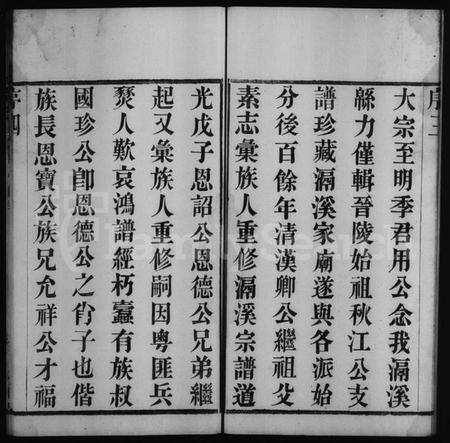 序三
大宗至明季君用公念我滆溪
緜力僅輯晉陵始祖秋江公支
譜珍藏滆溪家廟遂與各派始
分後百餘年清漢卿公繼祖父
素志彙族人重修滆溪宗譜道
光戊子恩詔公恩德公兄弟繼
起又彙族人重修嗣因粤匪兵
燹人歎哀鴻譜經朽蠹有族叔
國珍公卽恩德公之肖子也偕
族長恩寶公族兄允祥公才福
序四
FamilySearch